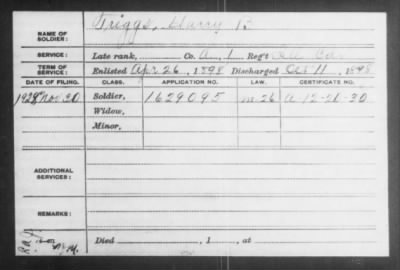 NAME OF SOLDIER: Griggs, Harry B.
SERVICE: Late rank, Co. A, 1 Reg't Cav
TERM OF SERVICE: Enlisted Apr 26, 1898 Discharged Oct 11, 1898
DATE OF FILING. CLASS. APPLICATION NO. LAW. CERTIFICATE NO.
1928 Nov 30 Soldier, 1629095
Widow,
Minor,
ADDITIONAL SERVICES:
REMARKS:
Died , 1 , at